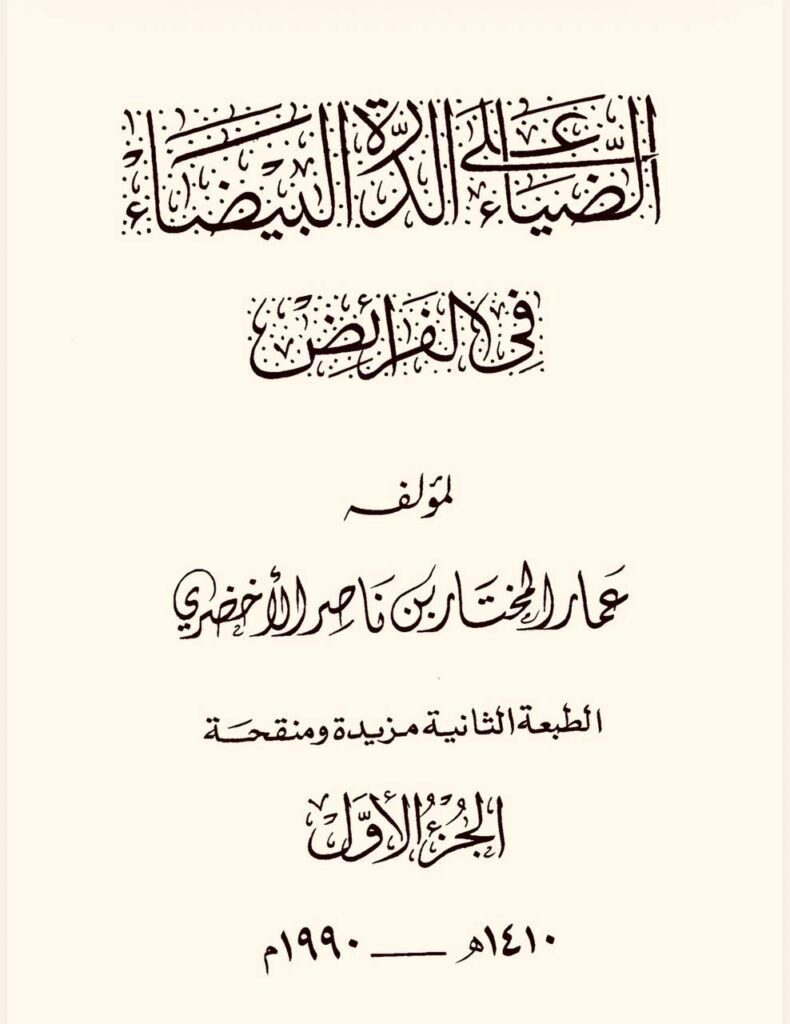 الضّياء على الدّرة البيضاء
في الفرائض
لمؤلفه
عمار المختار بن ناصر الأخضري
الطبعة الثانية مزيدة ومنقحة
الجُزءُ الأوّل
١٤١٠هـ ــــ ١٩٩٠م